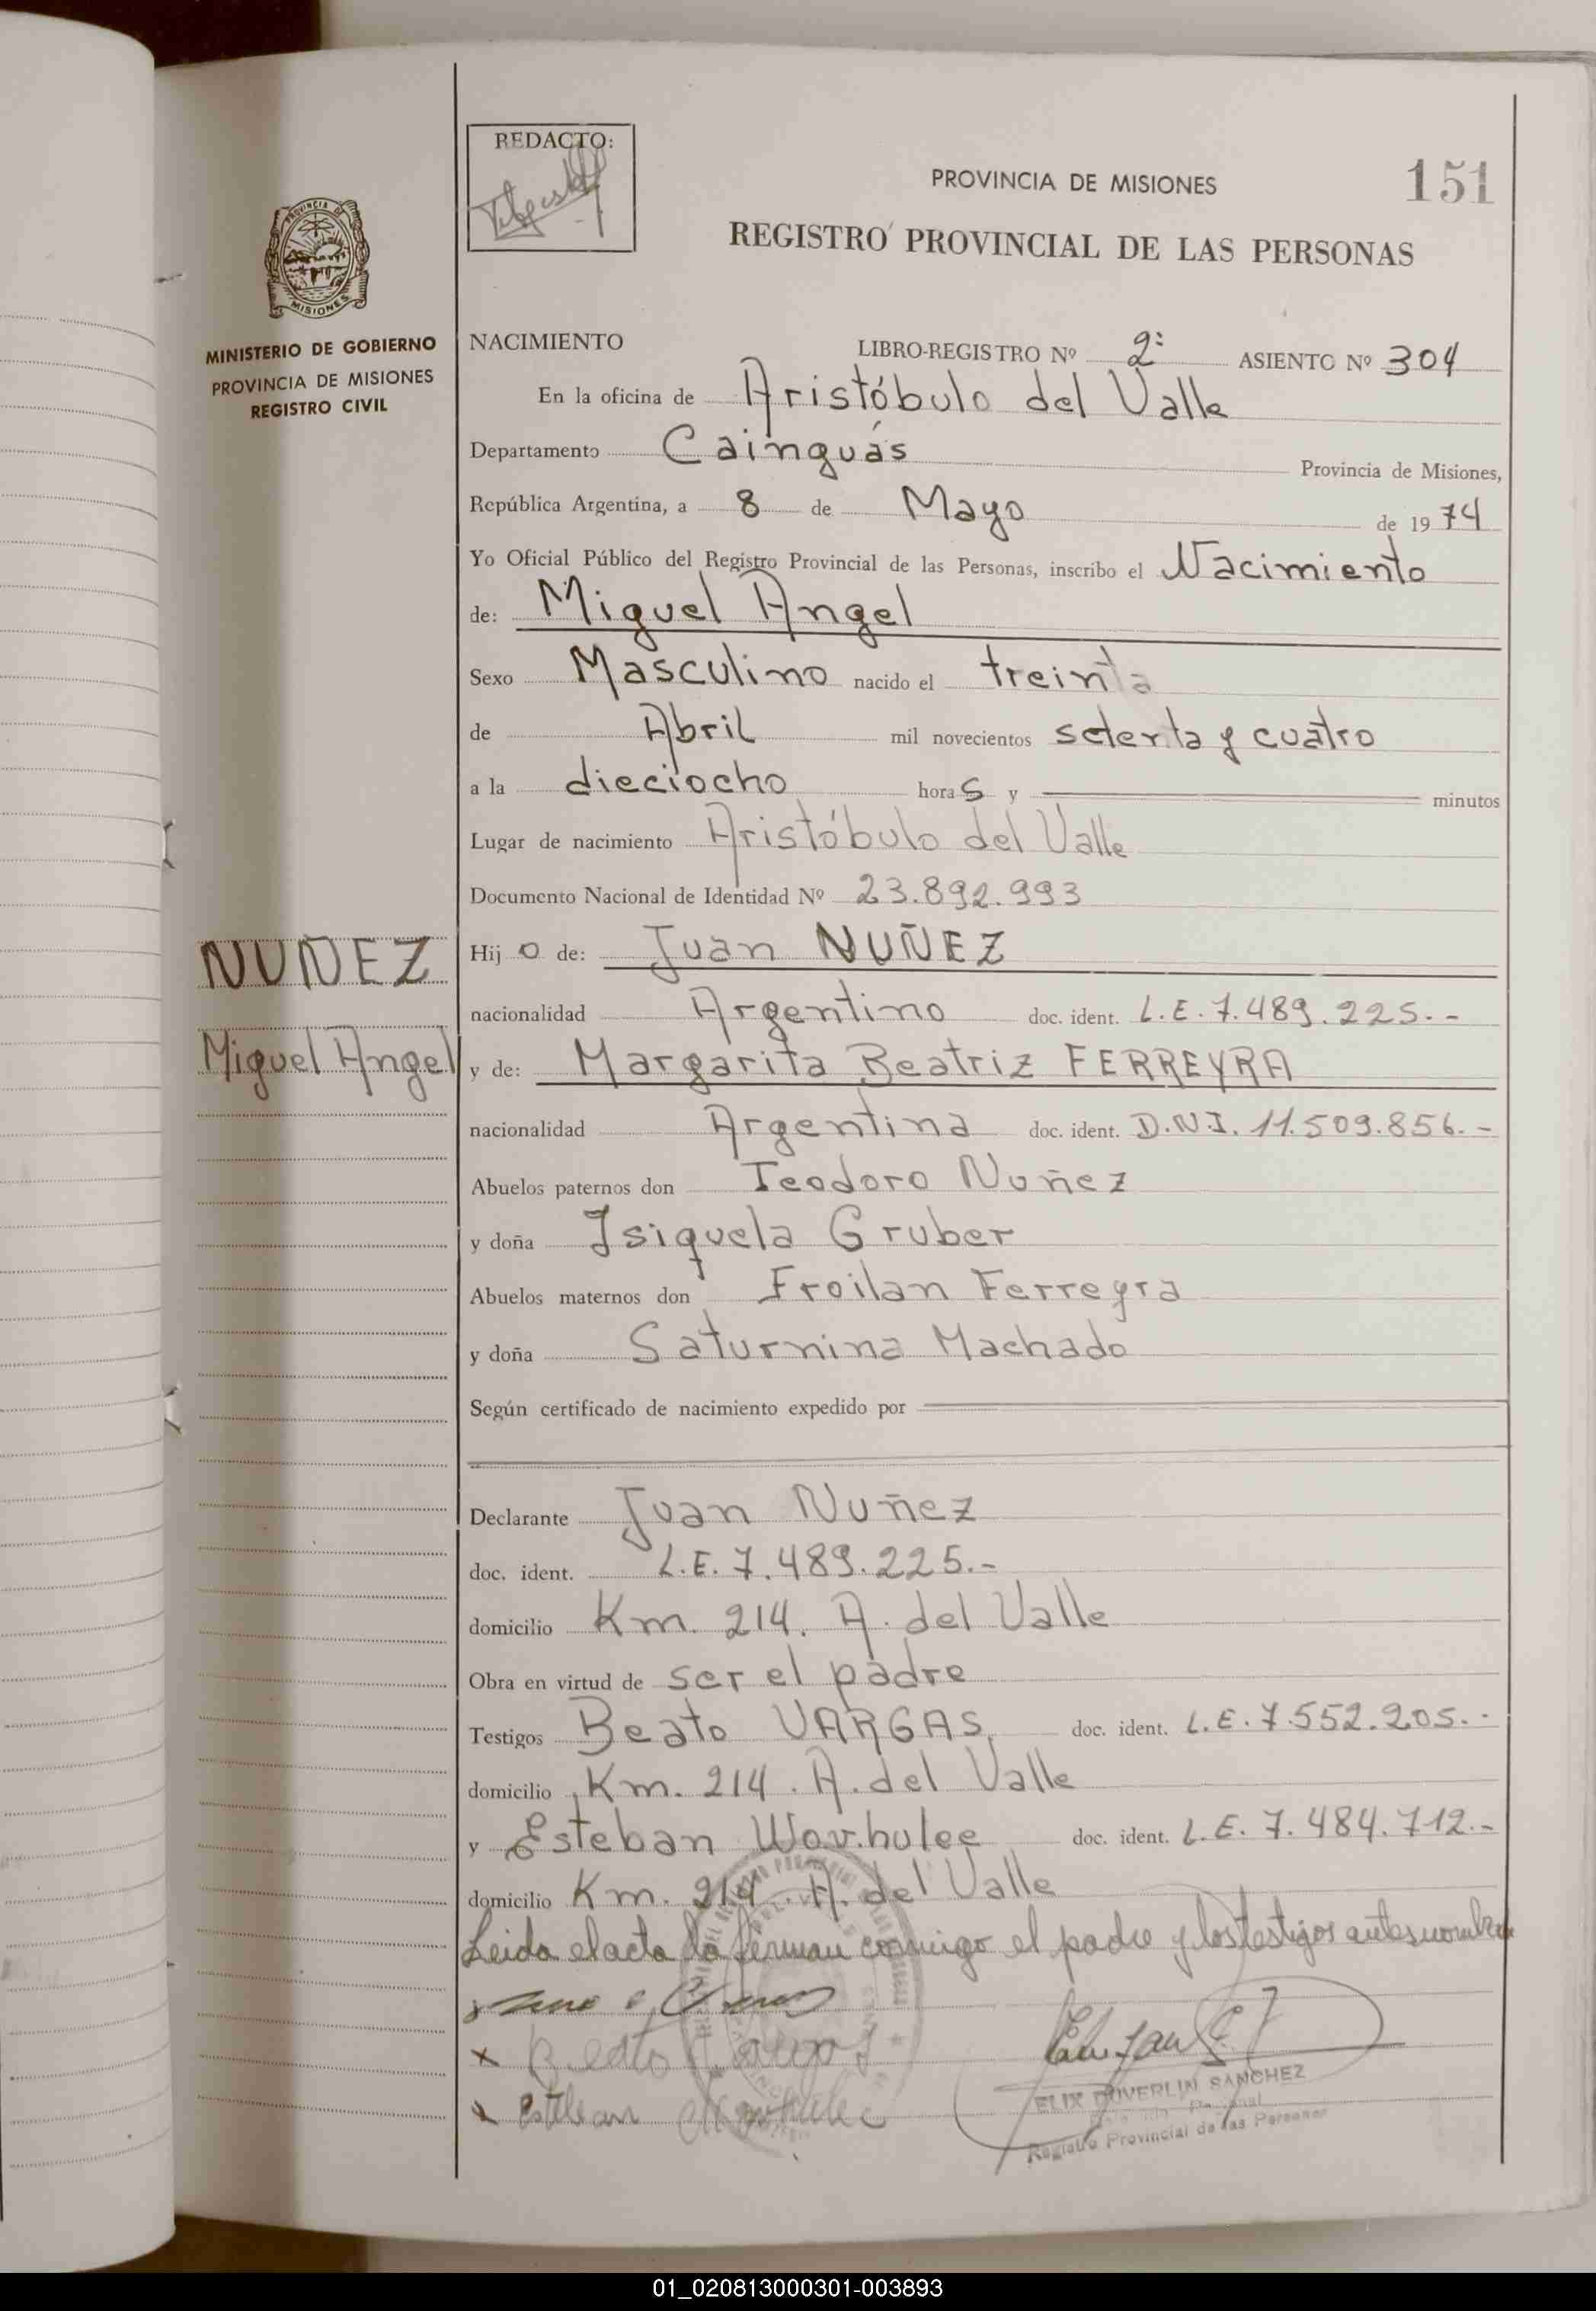 REDACTO:
PROVINCIA DE MISIONES
151
REGISTRO PROVINCIAL DE LAS PERSONAS
PROVINCIA DE
MISIONES
MINISTERIO DE GOBIERNO
PROVINCIA DE MISIONES
REGISTRO CIVIL
NACIMIENTO LIBRO-REGISTRO Nº 2º ASIENTO Nº 304
En la oficina de Aristóbulo del Valle
Departamento Cainguás Provincia de Misiones,
República Argentina, a 8 de Mayo de 1974
Yo Oficial Público del Registro Provincial de las Personas, inscribo el Nacimiento
de: Miguel Angel
Sexo Masculino nacido el treinta
de Abril mil novecientos setenta y cuatro
a la dieciocho horas y minutos
Lugar de nacimiento Aristóbulo del Valle
Documento Nacional de Identidad Nº 23.892.993
NUÑEZ
Miguel Angel
Hijo de: Juan NUÑEZ
nacionalidad Argentino doc. ident. L.E. 7.489.225.-
y de: Margarita Beatriz FERREYRA
nacionalidad Argentina doc. ident. D.N.I. 11.509.856.-
Abuelos paternos don Teodoro Nuñez
y doña Isiquela Gruber
Abuelos maternos don Froilan Ferreyra
y doña Saturnina Machado
Según certificado de nacimiento expedido por
Declarante Juan Nuñez
doc. ident. L.E. 7.489.225.-
domicilio Km. 214. A. del Valle
Obra en virtud de ser el padre
Testigos Beato VARGAS, doc. ident. L.E. 7.552.205.-
domicilio Km. 214. A. del Valle
y Esteban doc. ident. L.E. 7.484.712.-
domicilio Km. 214. A. del Valle
Leida el acta la firman conmigo el padre y los testigos antes nombra
x Beato Vargas
x Esteban
ELIX DUVERLIN SANCHEZ
Registro Provincial de las Personas
01_020813000301-003893